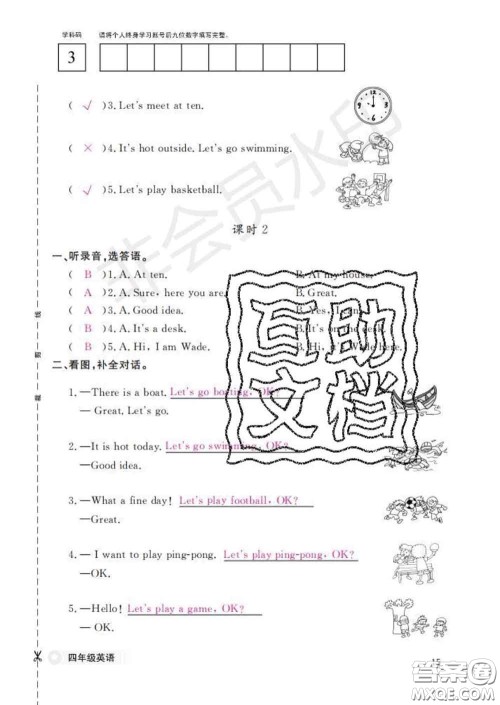 学科码 请将个人终身学习账号后九位数字填写完整。
3
( √ )3. Let's meet at ten.
( × )4. It's hot outside. Let's go swimming.
( √ )5. Let's play basketball.
课时 2
一、听录音,选答语。
( B )1. A. At ten. B. At my house.
( A )2. A. Sure, here you are. B. Great.
( A )3. A. Good idea. B. Yes, I am.
( B )4. A. It's a desk. B. It's on the desk.
( B )5. A. Hi, I am Wade. B. Hi, Wade here.
二、看图,补全对话。
1. —There is a boat. Let's go boating, OK?
—Great. Let's go.
2. —It is hot today. Let's go swimming, OK?
—Good idea.
3. —What a fine day! Let's play football, OK?
—Great.
4. —I want to play ping-pong. Let's play ping-pong, OK?
—OK.
5. —Hello! Let's play a game, OK?
—OK.
裁 剪 线
四年级英语
15
非会员水印
互助
文档
答案圈
MXQE.COM